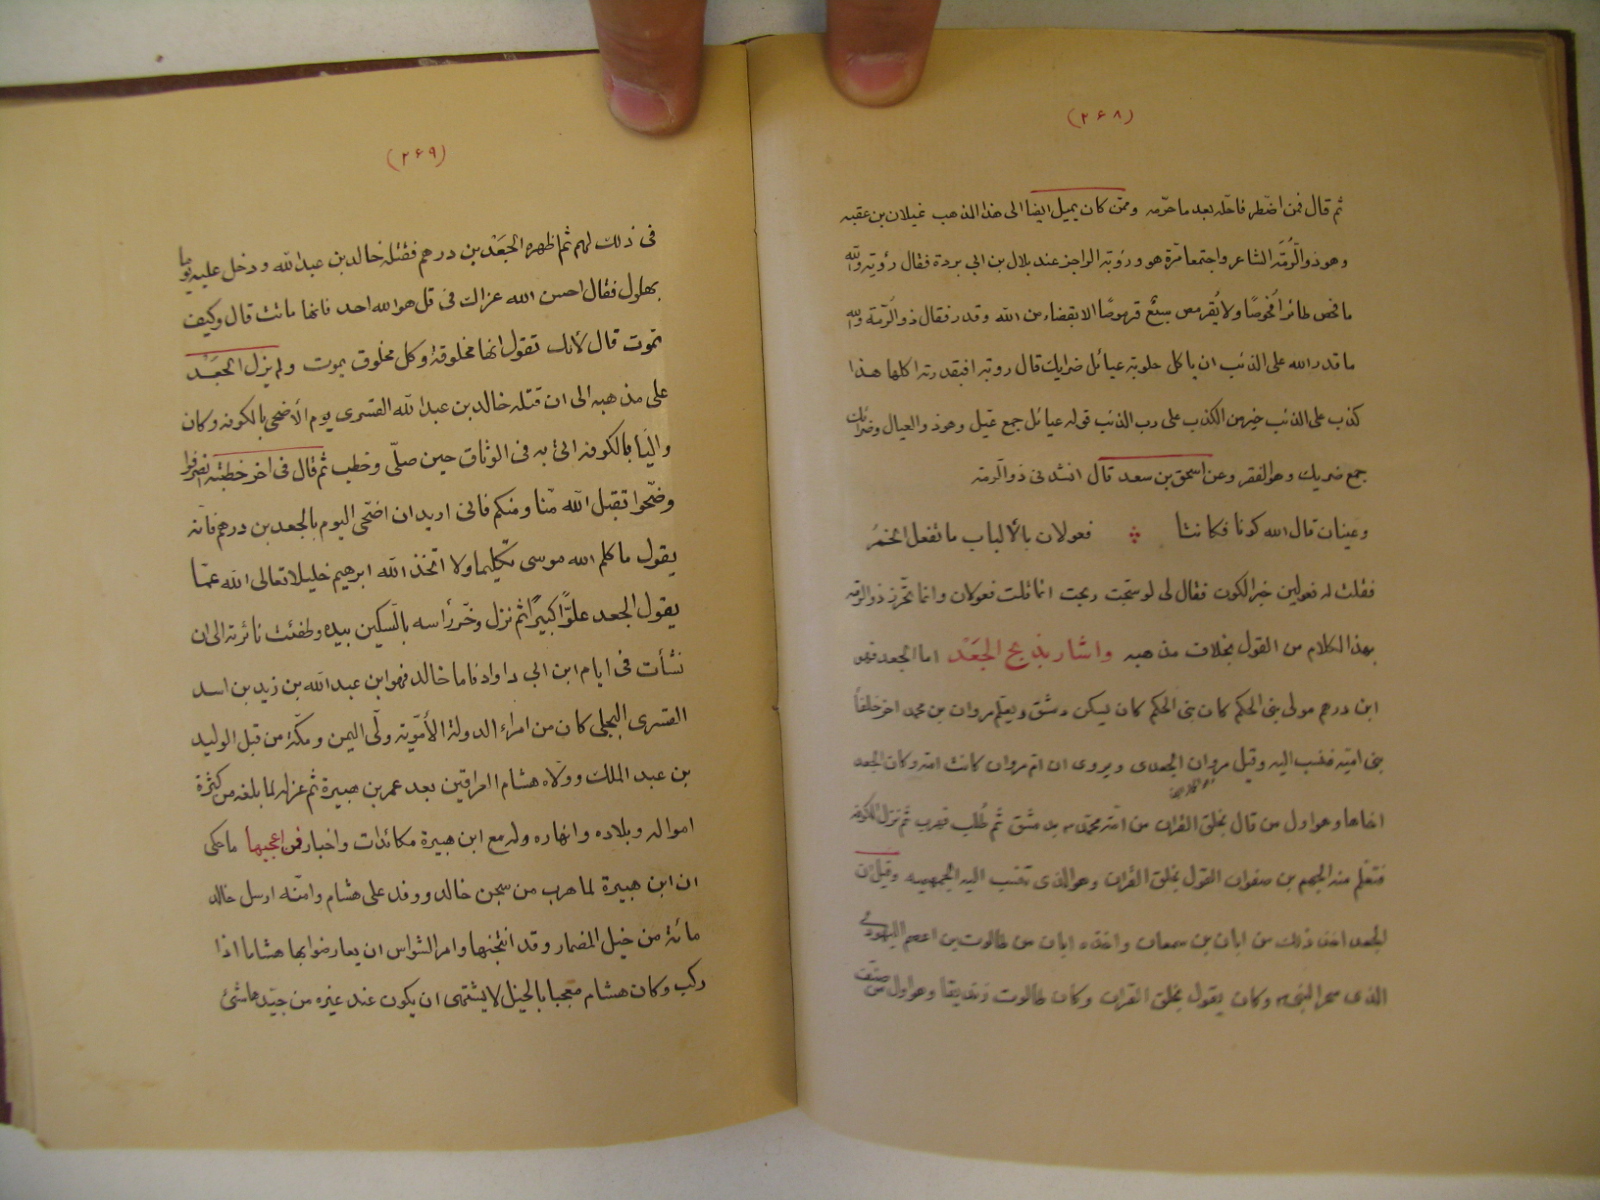 (٢٦٨)
ثم قال فمن اضطر فاحله بعد ما حرّمه وممّن كان يميل ايضا الى هذا المذهب غيلان بن عقبه
وهو ذو الرُّمّة الشاعر واجتمعا مرّة هو ورؤبة الراجز عند بلال بن ابي بردة فقال رؤبة والله
ما فحص طائر اُفحوصًا ولا يُقرمص سبعٌ قرموصًا الا بقضاء من الله وقدر فقال ذو الرّمّة والله
ما قدر الله على الذئب ان ياكل حلوبة عيائل ضرايك قال روبة افبقدرته اكلها هذا
كذب على الذئب خير من الكذب على رب الذئب قوله عيائل جمع عيّل وهو ذو العيال وضرائك
جمع ضريك وهو الفقر وعن اسحق بن سعد قال انشدني ذو الرّمة
وعينان قال الله كونا فكانتا فعولان بالألباب ما تفعل الخمرُ
فقلت له فعولين خبر الكون فقال لي لو سبّحت ربحت انما قلت فعولان وانما تحرّز ذو الرمّة
بهذا الكلام من القول بخلاف مذهبه واشار بذبح الجَعْد اما الجعد فهو
ابن درهم مولى بنى الحكم كان بنى الحكم كان يسكن دمشق ويعلم مروان بن محمد اخر خلفاء
بنى اميّه فنسب اليه وقيل مروان الجعدى ويروى ان ام مروان كانت امة وكان الجعد
اخاها وهو اول من قال بخلق القران من امّة محمّد بدمشق ثم طُلب فهرب ثم نزل الكوفة
فتعلّم منه الجهم بن صفوان القول بخلق القران وهو الذى تنسب اليه الجهميه وقيل ان
الجعد اخذ ذلك من ابان بن سمعان واخذه ابان من طالوت بن اعصم اليهودى
الذى سحر النبي وكان يقول بخلق القران وكان طالوت زنديقا وهو اول من صنّف
(٢٦٩)
فى ذلك لهم ثم اظهره الجَعْد بن درهم فقتله خالد بن عبد الله ودخل عليه يوما
بهلول فقال احسن الله عزاك فى قل هو الله احد فانها ماتت قال وكيف
تموت قال لأنك تقول انها مخلوقة وكل مخلوق يموت ولم يزل الجَعْد
على مذهبه الى ان قتله خالد بن عبد الله القسرى يوم الأضحى بالكوفه وكان
واليا بالكوفه اتى به فى الوثاق حين صلّى وخطب ثم قال فى اخر خطبته انصرفوا
وضحّوا تقبل الله منّا ومنكم فانى اريد ان اضحّى اليوم بالجعد بن درهم فانّه
يقول ما كلم الله موسى تكليما ولا اتخذ الله ابرهيم خليلا تعالى الله عمّا
يقول الجعد علوًّا كبيرًا ثم نزل وحَزّ رأسه بالسّكين بيده وطفئت نائرته الى ان
نشأت فى ايام ابن ابي داواد فاما خالد فهو ابن عبد الله بن زيد بن اسد
القسرى البجلي كان من امراء الدولة الأمويّة ولّى اليمن ومكّة من قبل الوليد
بن عبد الملك وولّاه هشام العراقين بعد عمر بن هبيرة ثم عزله لما بلغه من كثرة
امواله وبلاده وانهاره وله مع ابن هبيرة مكائدات واخبار فمن اعجبها ما حكى
ان ابن هبيرة لما هرب من سجن خالد ووفد على هشام وامّنه ارسل خالد
مائة من خيل المضمار وقد انتخبها وامر السّواس ان يعارضوا بها هشاما اذا
ركب وكان هشام معجبا بالخيل لا يشتهى ان يكون عند غيره من جيّدها شئ